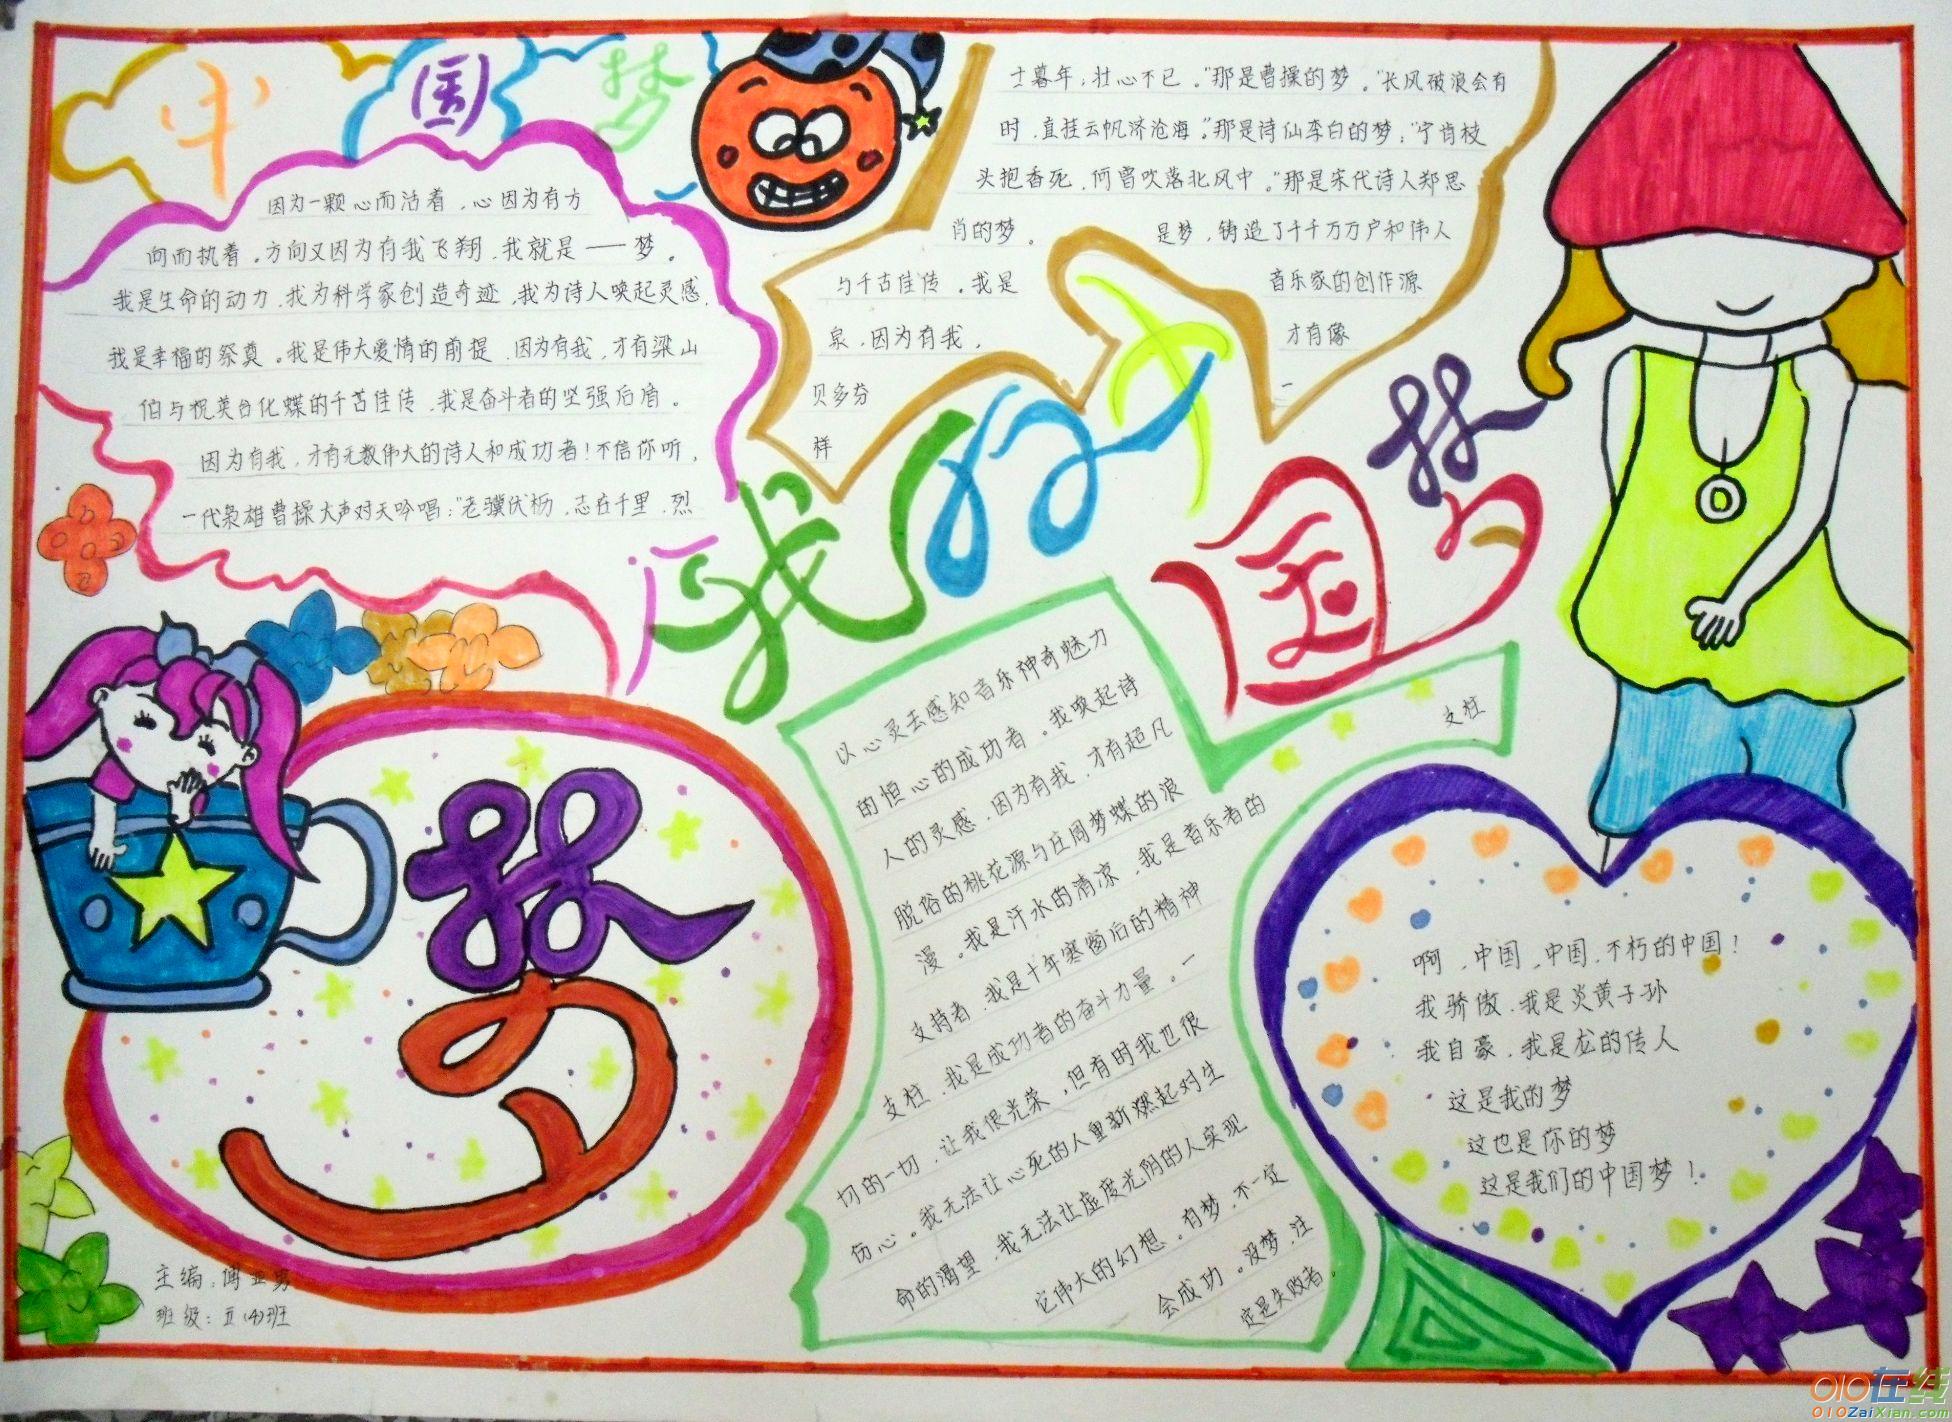 中国梦
因为一颗心而活着，心因为有方
向而执着。方向又因为有我飞翔，我就是——梦。
我是生命的动力，我为科学家创造奇迹，我为诗人唤起灵感，
我是幸福的祭奠。我是伟大爱情的前提，因为有我，才有梁山
伯与祝英台化蝶的千古佳传，我是奋斗者的坚强后盾。
因为有我，才有无数伟大的诗人和成功者！不信你听，
一代枭雄曹操大声对天吟唱：“老骥伏枥，志在千里，烈
士暮年，壮心不已。”那是曹操的梦。“长风破浪会有
时，直挂云帆济沧海。”那是诗仙李白的梦；“宁肯枝
头抱香死，何曾吹落北风中。”那是宋代诗人郑思
肖的梦。 是梦，铸造了千千万万户和伟人
与千古佳传。我是 音乐家的创作源
泉，因为有我， 才有像
贝多芬 一
样
我的中国梦
以心灵去感知音乐神奇魅力
的恒心的成功者。我唤起诗
人的灵感，因为有我，才有超凡
脱俗的桃花源与庄周梦蝶的浪
漫。我是汗水的清凉，我是音乐者的
支持者，我是十年寒窗后的精神
支柱，我是成功者的奋斗力量。一
切的一切，让我很光荣，但有时我也很
伤心。我无法让心死的人重新燃起对生
命的渴望，我无法让虚度光阴的人实现
它伟大的幻想。有梦，不一定
会成功。没梦，注
定是失败者。
支柱
梦
啊，中国，中国，不朽的中国！
我骄傲，我是炎黄子孙
我自豪，我是龙的传人
这是我的梦
这也是你的梦
这是我们的中国梦！
主编：傅亚男
班级：五(4)班
010在线
010ZaiXian.com